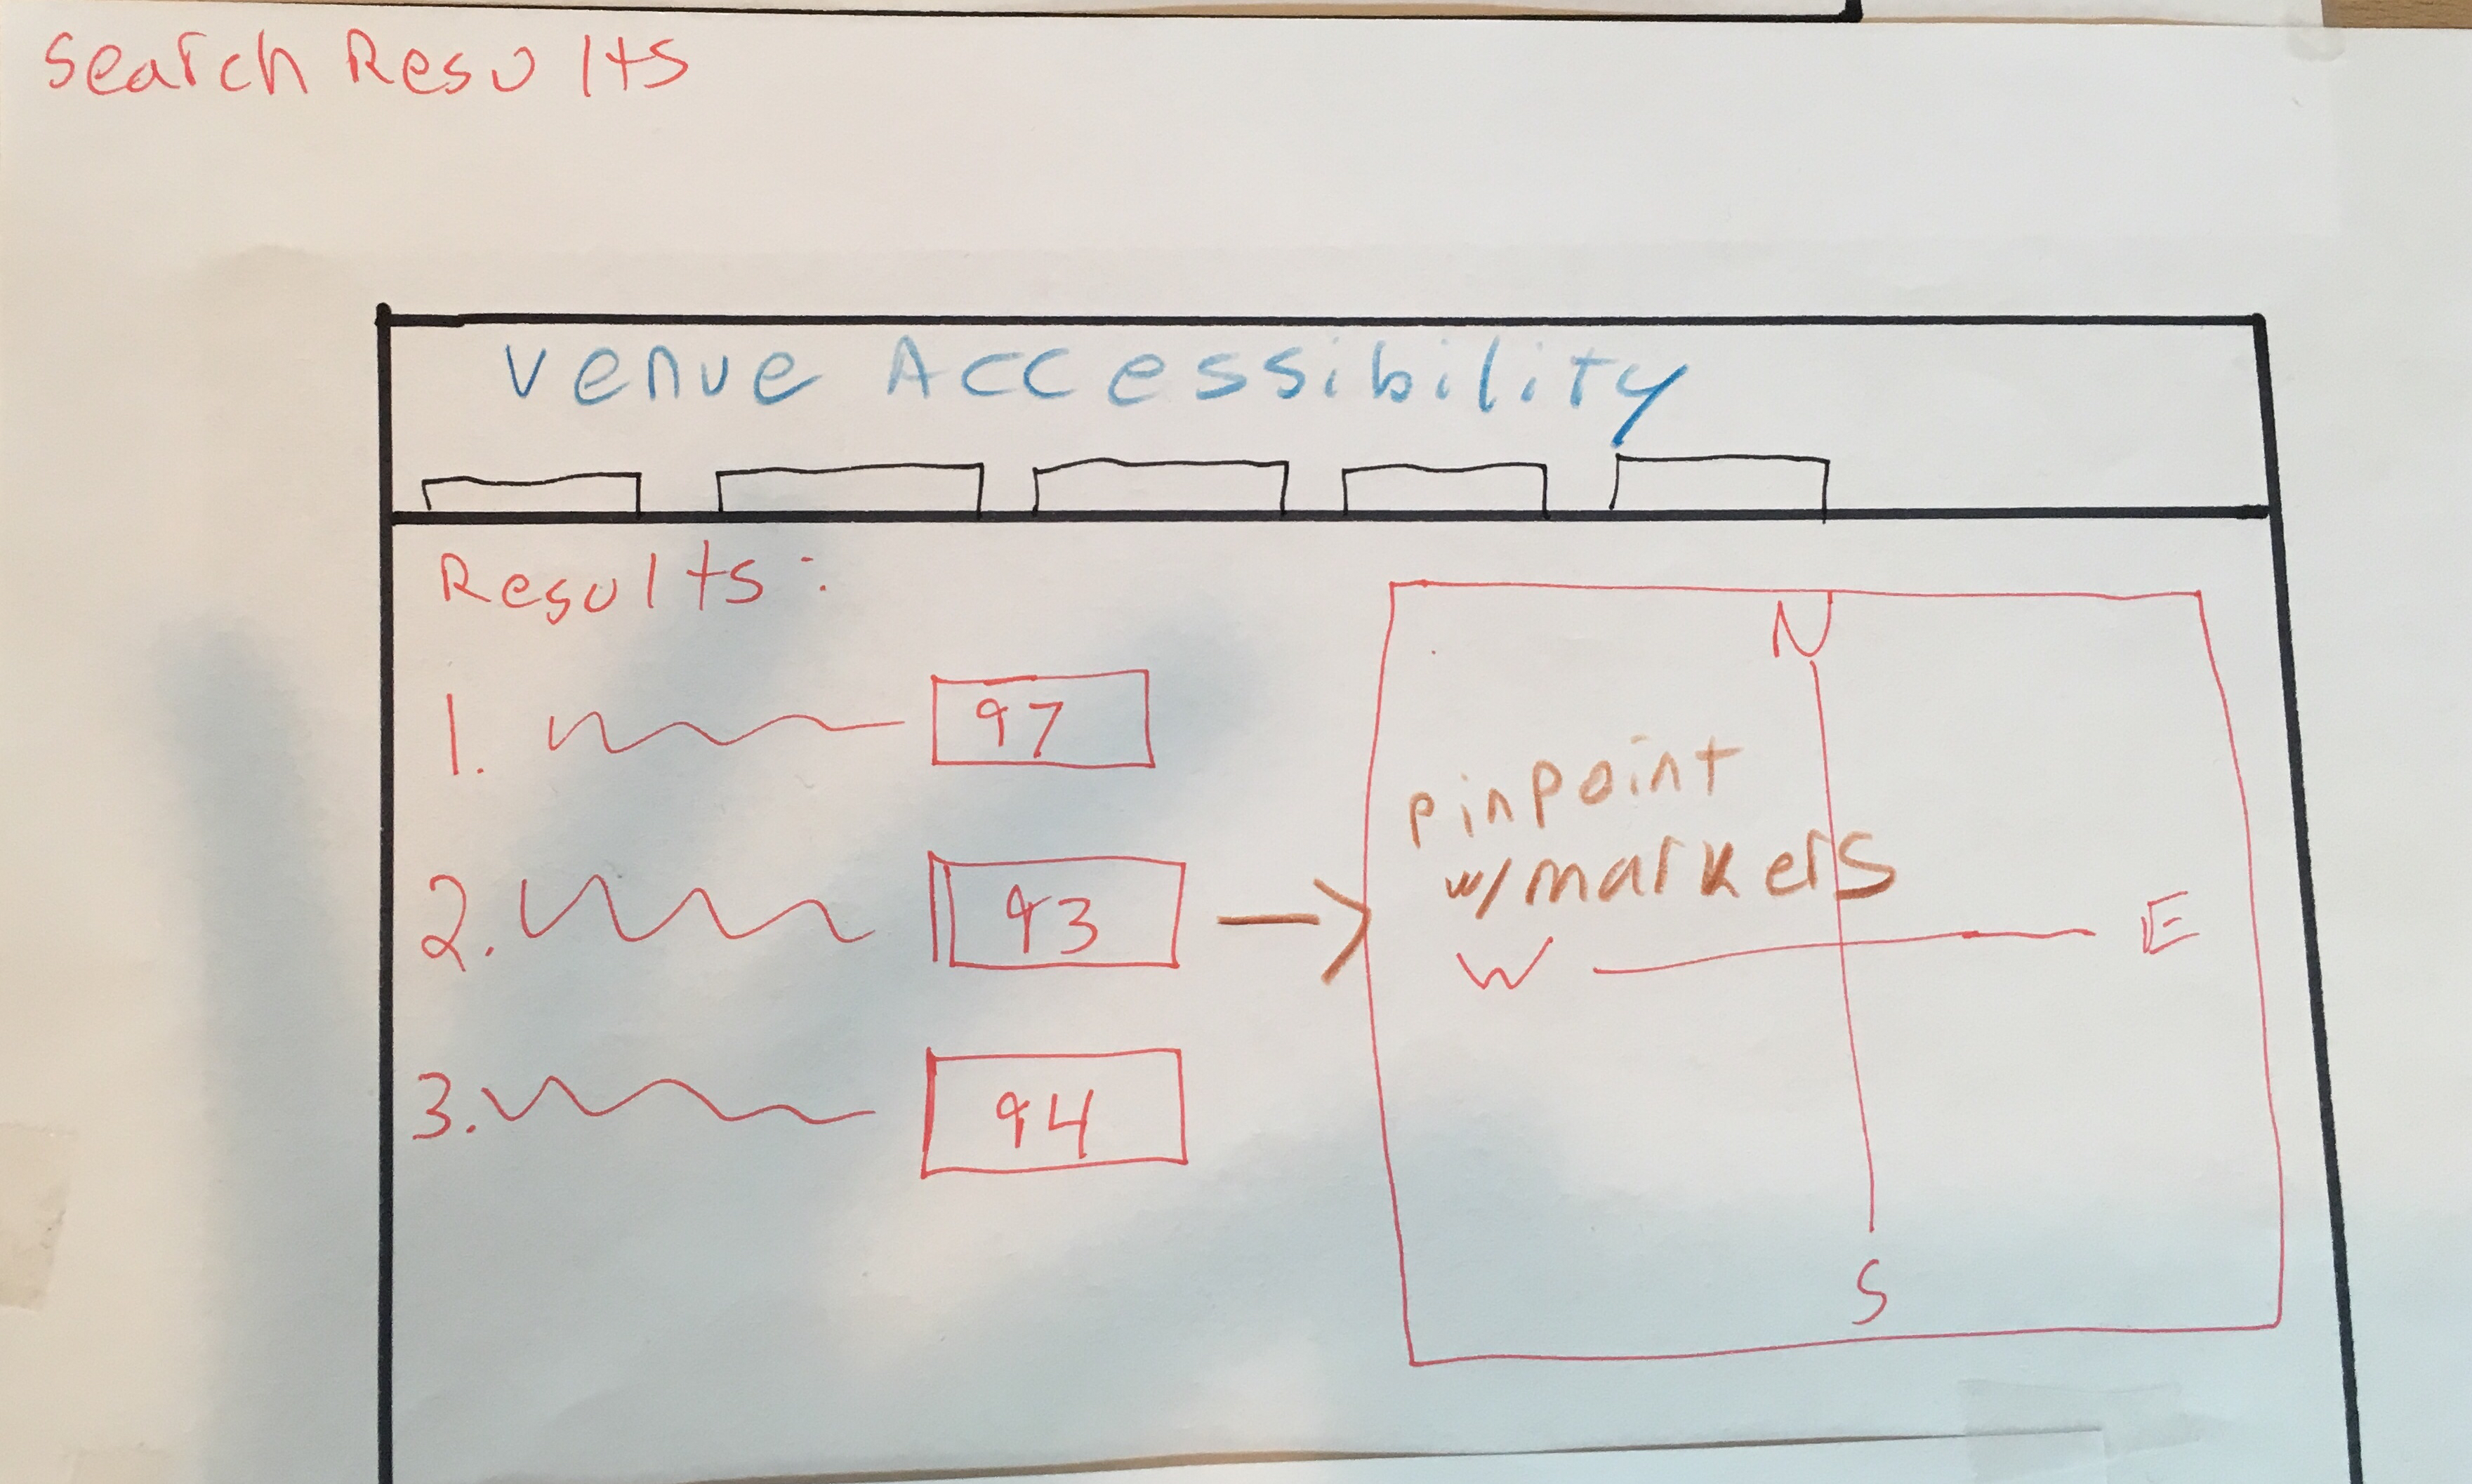 Search Results
Venue Accessibility
Results:
1. 97
2. 93
3. 94
N
pinpoint
w/markers
W E
S